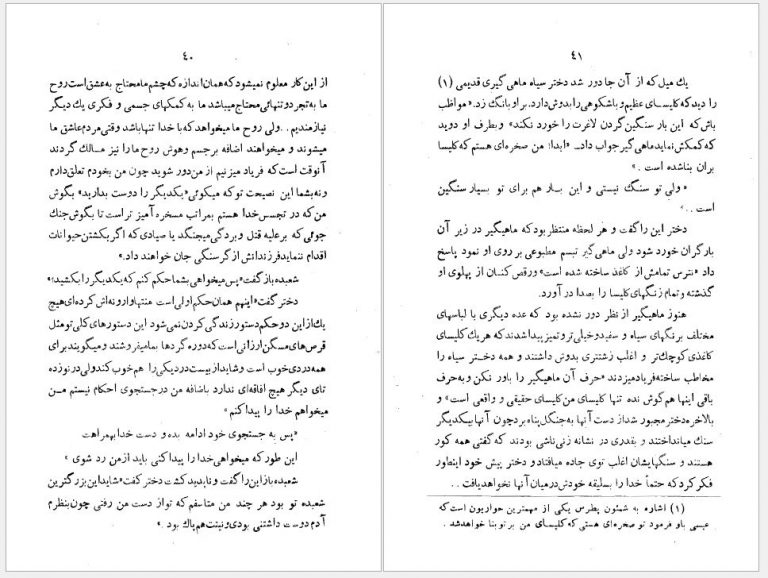 ٤٠
از این کار معلوم نمیشود که همان اندازه که چشم ما محتاج به عشق است روح
ما به تجرد و تنهائی محتاج میباشد ما به کمکهای جسمی و فکری یك دیگر
نیازمندیم . . ولی روح ما میخواهد که با خدا تنها باشد وقتی مردم عاشق ما
میشوند و میخواهند اضافه بر جسم وهوش روح ما را نیز مالك گردند
آنوقت است که فریاد میزنیم از من دور شوید چون من بخودم تعلق دارم
و نه بشما این نصیحت تو که میگوئی «یکدیگر را دوست بدارید» بگوش
من که در تجسس خدا هستم بمراتب مسخره آمیز تر است تا بگوش جنك
جوئی که بر علیه قتل و بردگی میجنگد یا صیادی که اگر بکشتن حیوانات
اقدام ننماید فرزندانش از گرسنگی جان خواهند داد.»
شعبده باز گفت «پس میخواهی بشما حکم کنم که یکدیگر را بکشید؟»
دختر گفت «اینهم همان حکم اولی است منتها وارونه اش کرده ای هیچ
یك از این دو حکم دستور زندگی کردن نمی شود این دستورهای کلی تو مثل
قرص های مسکن ارزانی است که دوره گردها بما میفروشند و میگویند برای
همه دردی خوب است و شاید از بیست درد یکی را هم خوب کند ولی در نوزده
تای دیگر هیچ افاقه ای ندارد باضافه من در جستجوی احکام نیستم من
میخواهم خدا را پیدا کنم»
«پس به جستجوی خود ادامه بده و دست خدا بهمراهت
این طور که میخواهی خدا را پیدا کنی باید از من رد شوی »
شعبده باز این را گفت و ناپدید گشت دختر گفت «شاید این بزرگترین
شعبده تو بود هر چند من متاسفم که تو از دست من رفتی چون بنظرم
آدم دوست داشتنی بودی و نیتت هم پاك بود .»
٤١
یك میل که از آن جا دور شد دختر سیاه ماهی گیری قدیمی (۱)
را دید که کلیسای عظیم و باشکوهی را بدوش دارد. بر او بانگ زد. «مواظب
باش که این بار سنگین گردن لاغرت را خورد نکند» و بطرف او دوید
که کمکش نماید ماهی گیر جواب داد.. «ابدا؛ من صخره ای هستم که کلیسا
بران بنا شده است .»
«ولی تو سنگ نیستی و این بار هم برای تو بسیار سنگین
است . .»
دختر این را گفت و هر لحظه منتظر بود که ماهیگیر در زیر آن
بار گران خورد شود ولی ماهی گیر تبسم مطبوعی بر روی او نمود پاسخ
داد «نترس تمامش از کاغذ ساخته شده است» و رقص کنان از پهلوی او
گذشته و تمام زنگهای کلیسا را بصدا در آورد.
هنوز ماهیگیر از نظر دور نشده بود که عده دیگری با لباسهای
مختلف برنگهای سیاه و سفید و خیلی تر و تمیز پیدا شدند که هر یك کلیسای
کاغذی کوچك تر و اغلب زشتتری بدوش داشتند و همه دختر سیاه را
مخاطب ساخته فریاد میزدند «حرف آن ماهیگیر را باور نکن و به حرف
باقی اینها هم گوش نده تنها کلیسای من کلیسای حقیقی و واقعی است» و
بالاخره دختر مجبور شد از دست آنها به جنگل پناه برد چون آنها بیکدیگر
سنك میانداختند و بقدری در نشانه زنی ناشی بودند که گفتی همه کور
هستند و سنگهایشان اغلب توی جاده میافتاد و دختر پیش خود اینطور
فکر کرد که حتماً خدا را بسلیقه خودش در میان آنها نخواهد یافت . .
(۱) اشاره به شمئون پطرس یکی از مهمترین حواریون است که
عیسی باو فرمود تو صخره ای هستی که کلیسای من بر تو بنا خواهد شد .